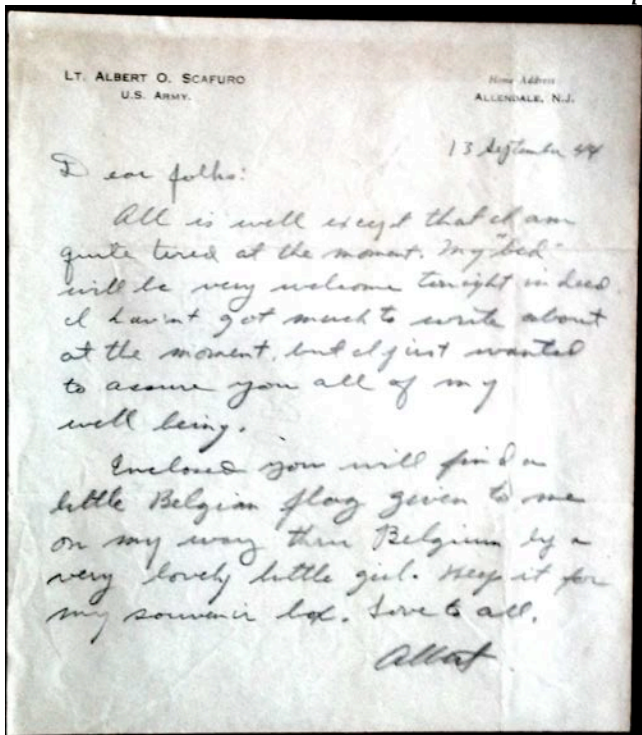 LT. ALBERT O. SCAFURO
U.S. ARMY.
Home Address
ALLENDALE, N.J.
13 September 44
Dear folks:
All is well except that I am
quite tired at the moment. My "bed"
will be very welcome tonight indeed.
I havint got much to write about
at the moment, but I just wanted
to assure you all of my
well being.
Enclosed you will find a
little Belgian flag given to me
on my way thru Belgium by a
very lovely little girl. Keep it for
my souvenir box. Love to all.
Albert